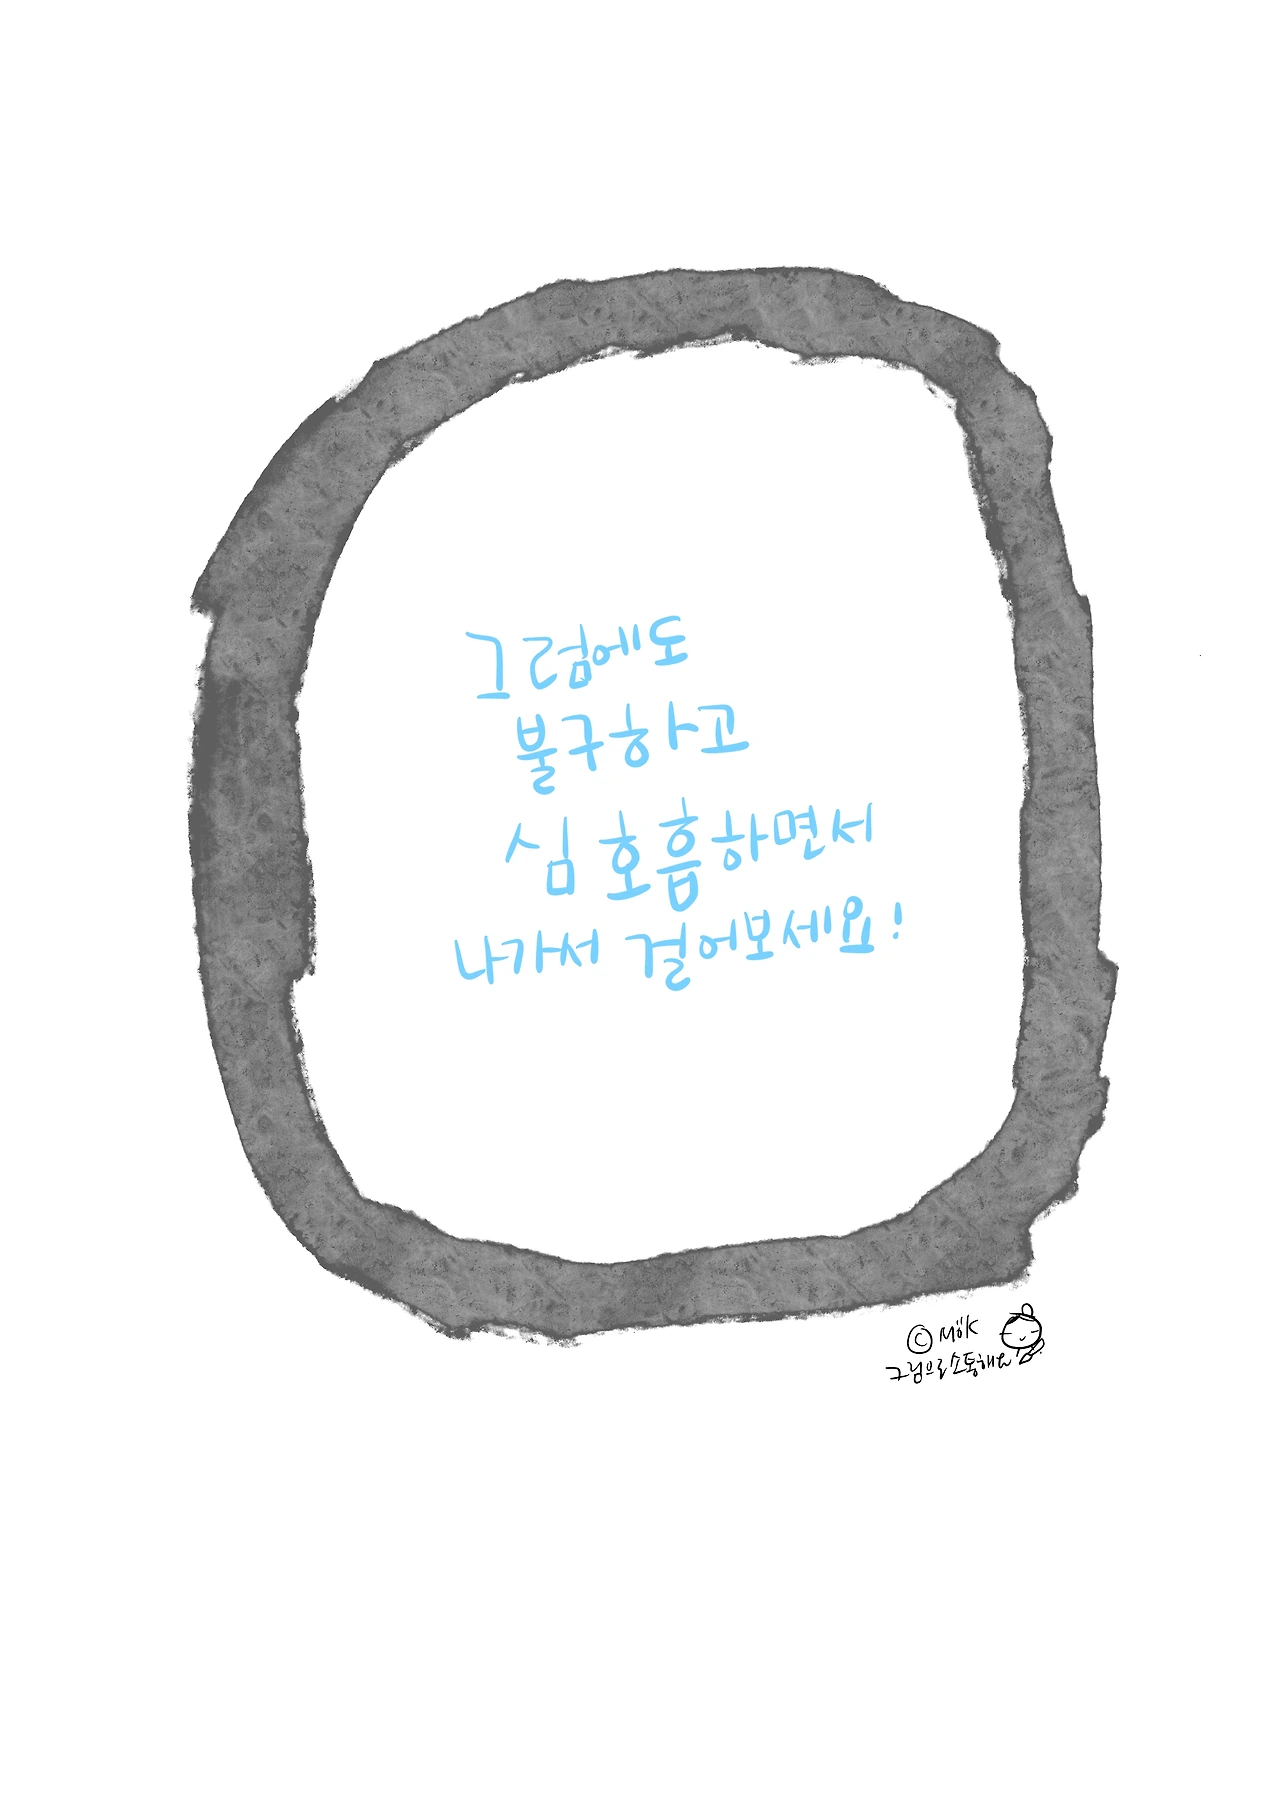 그럼에도
불구하고
심호흡하면서
나가서 걸어보세요!
© MöK
그림으로소통해요